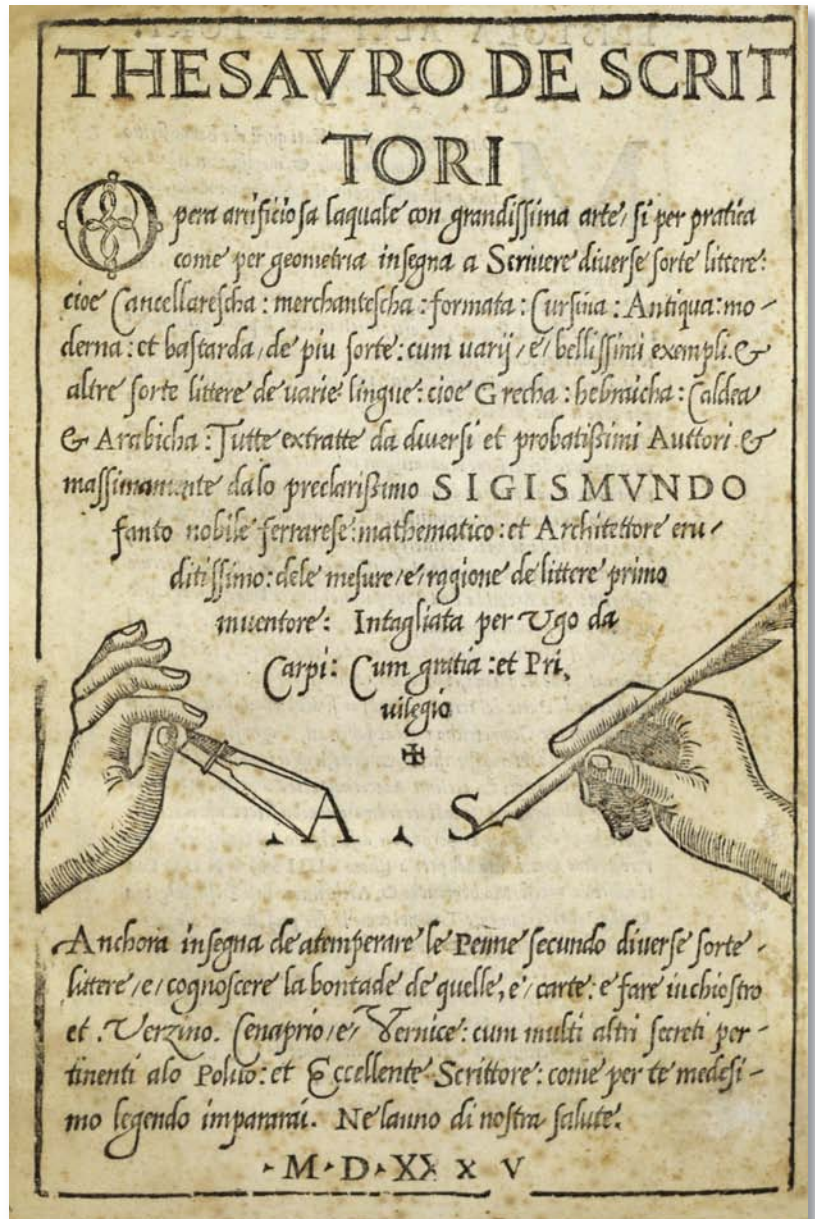 THESAVRO DE SCRIT
TORI
Opera artificiosa laquale con grandissima arte, si per pratica
come per geometria insegna a Scriuere diuerse sorte littere:
cioe Cancellarescha: merchantescha: formata: Cursiua: Antiqua: mo-
derna: et bastarda, de piu sorte: cum uarij, e, bellissimi exempli. &
altre sorte littere de uarie lingue: cioe Grecha: hebraicha: Caldea
& Arabicha: Tutte extratte da diuersi et probatissimi Auttori. &
massimamente dalo preclarissimo SIGISMVNDO
fanto nobile ferrarese: mathematico: et Architettore eru-
ditissimo: dele mesure, e, ragione de littere primo
inuentore: Intagliata per Ugo da
Carpi: Cum gratia: et Pri,
uilegio
✠
.A . S
Anchora insegna de atemperare le Penne secundo diuerse sorte
littere, e, cognoscere la bontade de quelle, e, carte: e fare inchiostro
et . Verzino. Cenaprio, e, Vernice: cum multi altri secreti per-
tinenti alo Polito: et Eccellente Scrittore: come per te medesi-
mo legendo impararai. Ne lanno di nostra salute.
M D XX x V